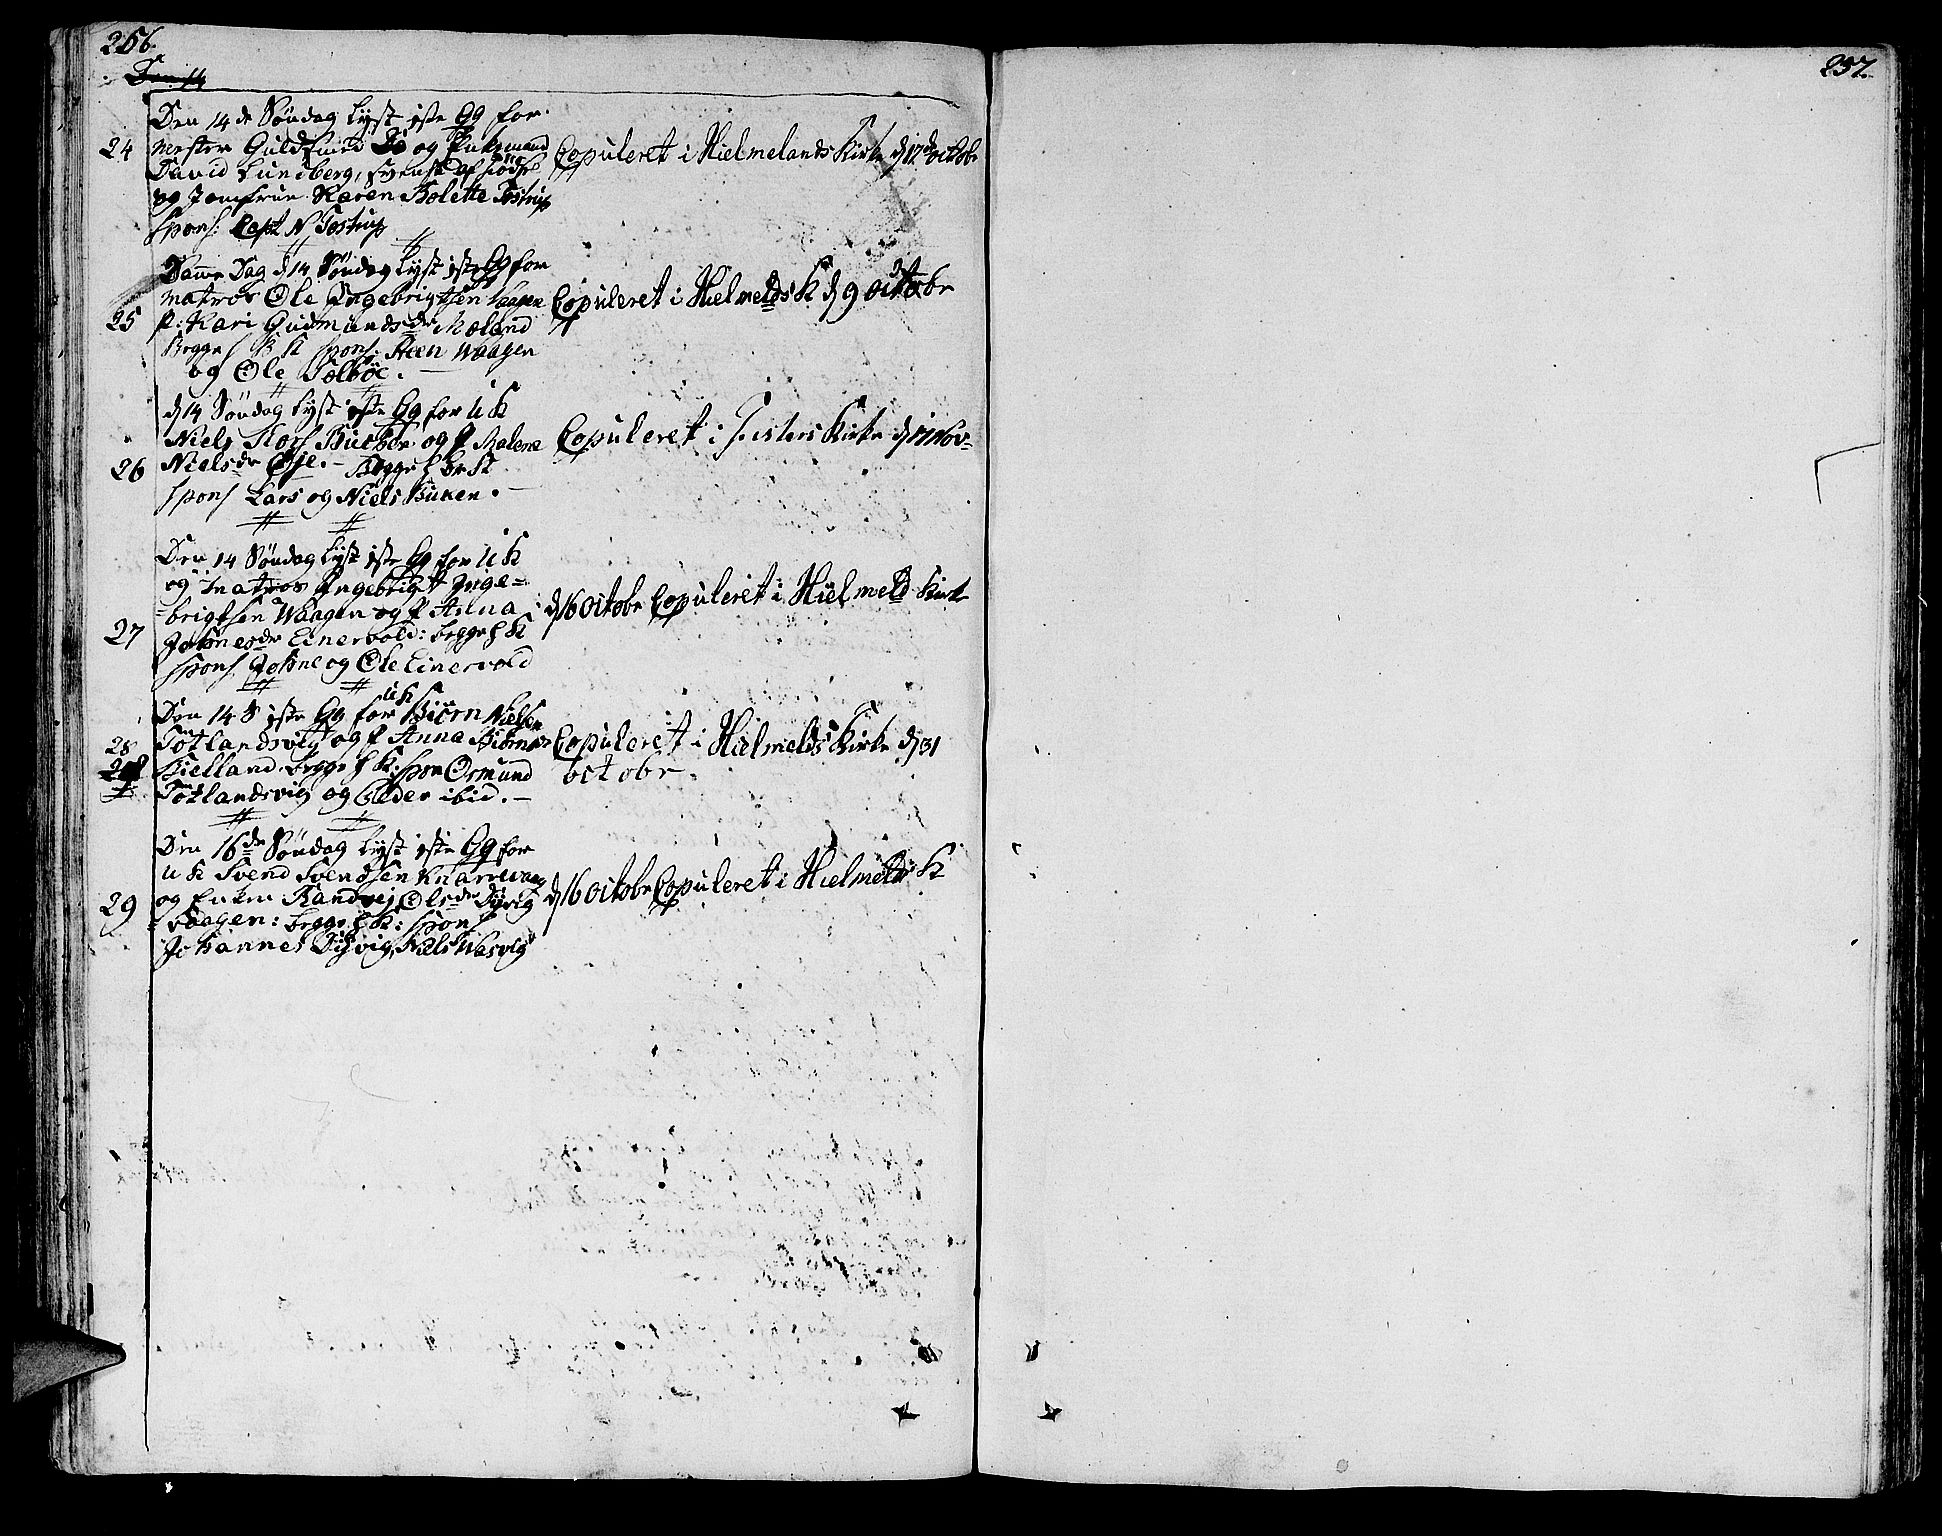 256.
Den 14
Den 14de Søndag lyst 1ste Gg for
24 mester Guldsmed og
David Lundberg, svensk af fødsel
og Jomfrue Karen Bolette Tostrup
spons: Capt N Tostrup
Copuleret i Hielmelands Kirke d 17de octobr
Same Dag d 14 Søndag lyst 1ste Gg for
matros Ole Engebrigtsen Waagen
25 p: Kari Gudmundsdr Moland
Begge f K spons: Steen Waagen
og Ole Tolbøe.
Copuleret i Hielmelds K d 9 octobr
d 14 Søndag lyst 1ste Gg for U K
Niels og p Malene
26 Nielsdr Øje. Begge f K
spons Lars og Niels
Copuleret i Fisters Kirke d 17 Nov-
Den 14 Søndag lyst 1ste Gg for U K
og matros Engebrigt Inge=
=brigtsen Waagen og p Anna
27 Johnesdr Einervold: begge f K
spons Johne og Ole Einervold
d 16 octobr Copuleret i Hielmeld Kirke
Den 14 S 1ste Gg for U K Biørn Nielsen
28 Tøtlandsvig og p Anna Biørnsdr
Hielland begge f K: spon Osmund
Tøtlandsvig og Peder ibid.
Copuleret i Hielmelds Kirke d 31
octobr.
Den 16de Søndag lyst 1ste Gg for
U K Svend Svendsen Knarrevaag
29 og Enken Randvej Olsdr Dysvig
Vaagen: begge f K: spons
Johannes Dysvig, Niels Wasvig
d 16 octobr Copuleret i Hielmelds K
257.